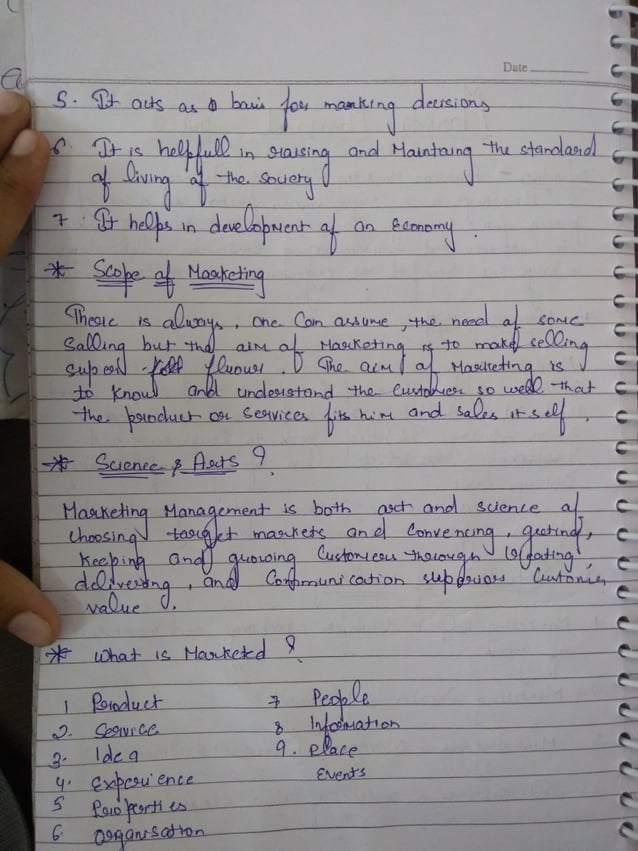 Date
5. It acts as a basis for marking decisions
6. It is helpfull in raising and Maintaing the standard
of living of the Society
7. It helps in development of an Economy.
* Scope of Marketing
There is always, one Can assume, the need of some
Salling but the aim of Marketing is to make selling
The aim of Marketing is
to Know and understand the Customer so well that
the product or Services fits him and sales itself.
* Science & Arts ?
Marketing Management is both art and science of
choosing target markets and Convencing, geeting,
Keeping and growing Customers through Creating,
deliverong, and Communication superiors Customer
value.
* What is Marketed ?
1 Product
2. Service
3. Idea
4. Experience
5 Properties
6. Organisation
7 People
8 Information
9. place
Events